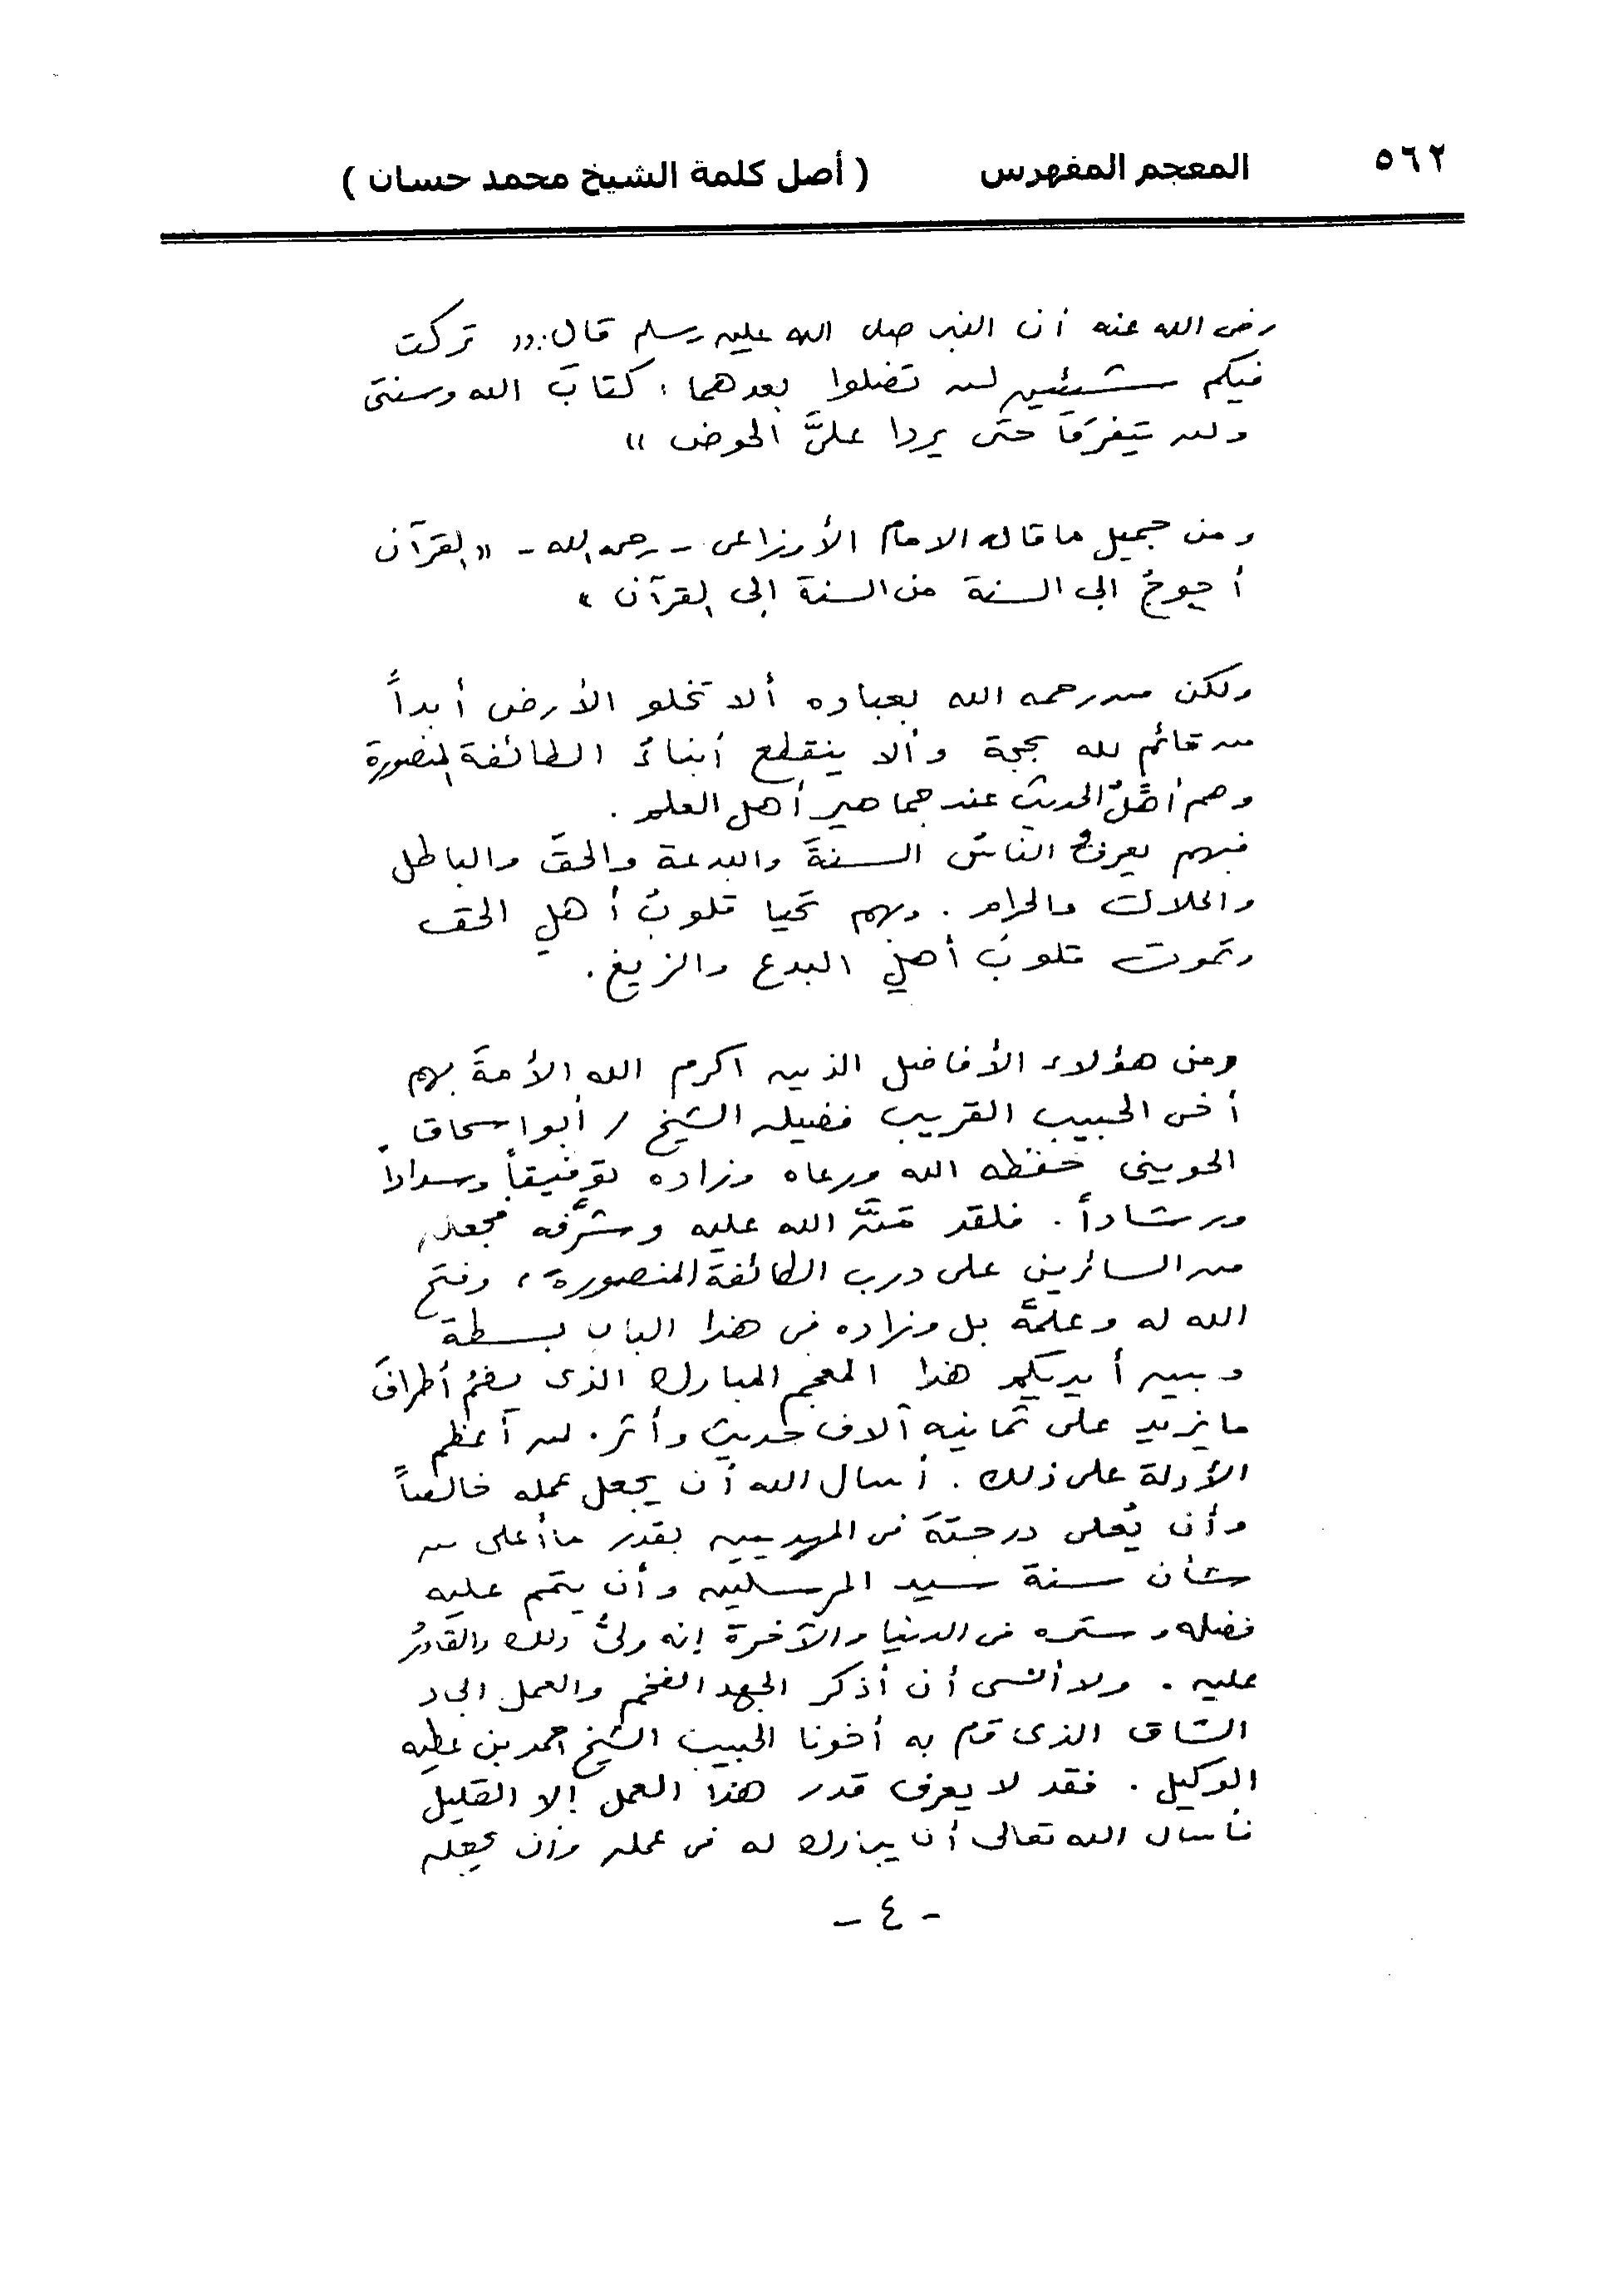 ٥٦٢ المعجم المفهرس ( أصل كلمة الشيخ محمد حسان )
رضى الله عنه أن النبى صلى الله عليه وسلم قال: « تركت
فيكم شيئين لن تضلوا بعدهما ، كتابَ الله وسنتى
ولن يتفرقا حتى يردا علىَّ الحوض »
ومن جميل ما قاله الامام الأوزاعى - رحمه الله - « القرآن
أحوجُ الى السنة من السنة إلى القرآن »
ولكن من رحمه الله بعباده ألا تخلو الأرض أبداً
من قائم لله بحجة وألا ينقطع أبناءُ الطائفة المنصورة
وهم أهلُ الحديث عند جماهير أهل العلم .
فبهم يعرفُ الناسُ السنةَ والبدعة والحقَ والباطل
والحلال والحرام . وبهم تحيا قلوبُ أهلِ الحق
وتموت قلوبُ أهلِ البدع والزيغ .
ومن هؤلاء الأفاضل الذين اكرم الله الأمةَ بهم
أخى الحبيب القريب فضيله الشيخ / أبو اسحاق
الحوينى حفظه الله ورعاه وزاده توفيقاً وسداداً
ورشاداً . فلقد مَنَّ الله عليه وشرَّفه فجعله
من السائرين على درب الطائفة المنصورة ، وفتح
الله له وعلمَّه بل وزاده فى هذا الباب بسطة
وبين أيديكم هذا المعجم المبارك الذى يضمُ أطرافَ
ما يزيد على ثمانيه آلاف حديث وأثر . لمن أعظم
الأدلة على ذلك . أسال الله أن يجعل عمله خالصاً
وأن يُعلى درجتَه فى المهديين بقدر ما أعلى من
شأن سنة سيد المرسلين وأن يتمم عليه
فضله وستره فى الدنيا والآخرة إنه ولىُّ ذلك والقادرُ
عليه . ولا أنسى أن أذكر الجهد الضخم والعمل الجاد
الشاق الذى قام به أخونا الحبيب الشيخ احمد بن عطيه
الوكيل . فقد لا يعرف قدر هذا العمل إلا القليل
فأسال الله تعالى أن يبارك له فى عمله وأن يجعله
- ٤ -